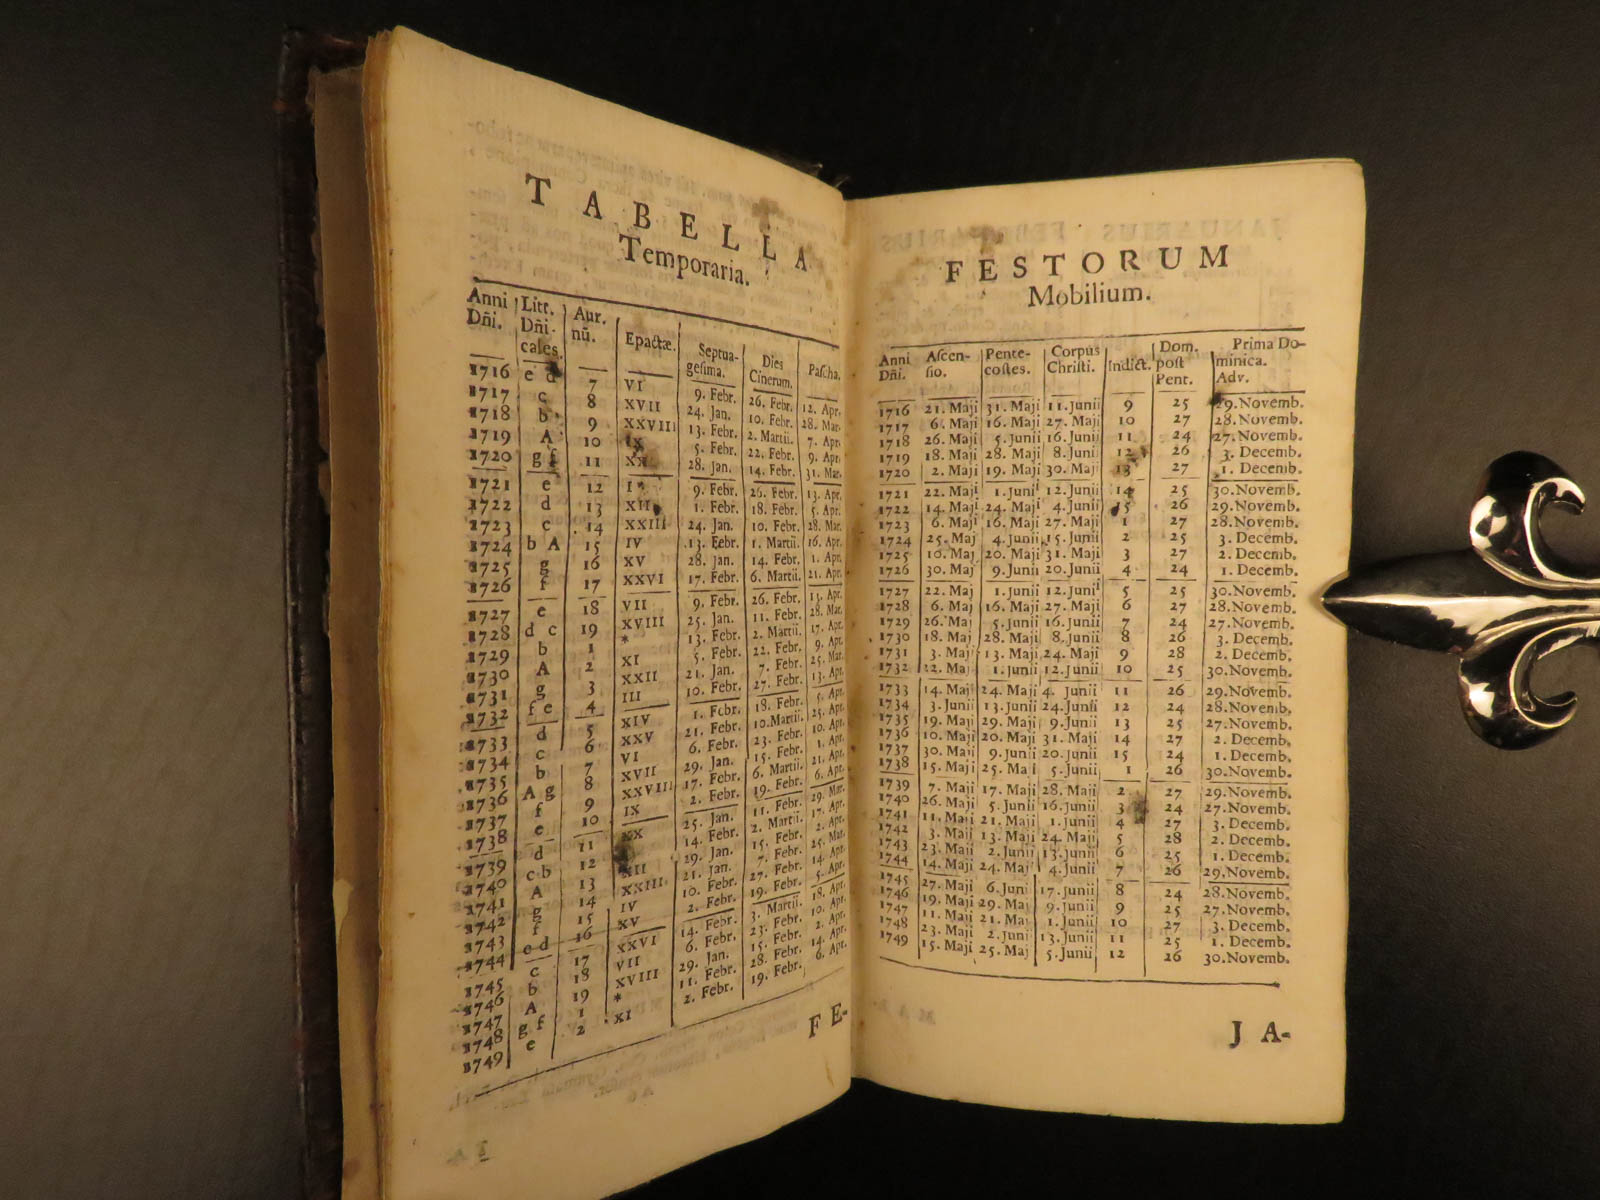 TABELLA
Temporaria.
Anni Dñi. Litt. Dñi- cales. Aur. nũ. Epactæ. Septua- gesima. Dies Cinerum. Pascha.
1716 e d 7 VI 9. Febr. 26. Febr. 12. Apr.
1717 c 8 XVII 24. Jan. 10. Febr. 28. Mar.
1718 b 9 XXVIII 13. Febr. 2. Martii. 7. Apr.
1719 A 10 IX 5. Febr. 22. Febr. 9. Apr.
1720 g f 11 XX 28. Jan. 14. Febr. 31. Mar.
1721 e 12 I 9. Febr. 26. Febr. 13. Apr.
1722 d 13 XII 1. Febr. 18. Febr. 5. Apr.
1723 c 14 XXIII 24. Jan. 10. Febr. 28. Mar.
1724 b A 15 IV 13. Febr. 1. Martii. 16. Apr.
1725 g 16 XV 28. Jan. 14. Febr. 1. Apr.
1726 f 17 XXVI 17. Febr. 6. Martii. 21. Apr.
1727 e 18 VII 9. Febr. 26. Febr. 13. Apr.
1728 d c 19 XVIII 25. Jan. 11. Febr. 28. Mar.
1729 b 1 * 13. Febr. 2. Martii. 17. Apr.
1730 A 2 XI 5. Febr. 22. Febr. 9. Apr.
1731 g 3 XXII 21. Jan. 7. Febr. 25. Mar.
1732 f e 4 III 10. Febr. 27. Febr. 13. Apr.
1733 d 5 XIV 1. Febr. 18. Febr. 5. Apr.
1734 c 6 XXV 21. Febr. 10. Martii. 25. Apr.
1735 b 7 VI 6. Febr. 23. Febr. 10. Apr.
1736 A g 8 XVII 29. Jan. 15. Febr. 1. Apr.
1737 f 9 XXVIII 17. Febr. 6. Martii. 21. Apr.
1738 e 10 IX 2. Febr. 19. Febr. 6. Apr.
1739 d 11 XX 25. Jan. 11. Febr. 29. Mar.
1740 c b 12 14. Febr. 2. Martii. 17. Apr.
1741 A 13 XII 29. Jan. 15. Febr. 2. Apr.
1742 g 14 XXIII 21. Jan. 7. Febr. 25. Mar.
1743 f 15 IV 10. Febr. 27. Febr. 14. Apr.
1744 e d 16 XV 2. Febr. 19. Febr. 5. Apr.
1745 c 17 XXVI 14. Febr. 3. Martii. 18. Apr.
1746 b 18 VII 6. Febr. 23. Febr. 10. Apr.
1747 A 19 XVIII 29. Jan. 15. Febr. 2. Apr.
1748 g f 1 * 11. Febr. 28. Febr. 14. Apr.
1749 e 2 XI 2. Febr. 19. Febr. 6. Apr.
F E-
FESTORUM
Mobilium.
Anni Dñi. Ascen- sio. Pente- costes. Corpus Christi. Indict. Dom. post Pent. Prima Do- minica. Adv.
1716 21. Maji 31. Maji 11. Junii 9 25 29. Novemb.
1717 6. Maji 16. Maji 27. Maji 10 27 28. Novemb.
1718 26. Maji 5. Junii 16. Junii 11 24 27. Novemb.
1719 18. Maji 28. Maji 8. Junii 12 26 3. Decemb.
1720 2. Maji 19. Maji 30. Maji 13 27 1. Decemb.
1721 22. Maji 1. Junii 12. Junii 14 25 30. Novemb.
1722 14. Maji 24. Maji 4. Junii 15 26 29. Novemb.
1723 6. Maji 16. Maji 27. Maji 1 27 28. Novemb.
1724 25. Maj 4. Junii 15. Junii 2 25 3. Decemb.
1725 10. Maj 20. Maji 31. Maji 3 27 2. Decemb.
1726 30. Maj 9. Junii 20. Junii 4 24 1. Decemb.
1727 22. Maj 1. Junii 12. Junii 5 25 30. Novemb.
1728 6. Maj 16. Maji 27. Maji 6 27 28. Novemb.
1729 26. Maj 5. Junii 16. Junii 7 24 27. Novemb.
1730 18. Maj 28. Maji 8. Junii 8 26 3. Decemb.
1731 3. Maj 13. Maji 24. Maji 9 28 2. Decemb.
1732 22. Maj 1. Junii 12. Junii 10 25 30. Novemb.
1733 14. Maj 24. Maji 4. Junii 11 26 29. Novemb.
1734 3. Junii 13. Junii 24. Junii 12 24 28. Novemb.
1735 19. Maji 29. Maji 9. Junii 13 25 27. Novemb.
1736 10. Maji 20. Maji 31. Maji 14 27 2. Decemb.
1737 30. Maji 9. Junii 20. Junii 15 24 1. Decemb.
1738 15. Maji 25. Mai 5. Junii 1 26 30. Novemb.
1739 7. Maji 17. Maji 28. Maji 2 27 29. Novemb.
1740 26. Maji 5. Junii 16. Junii 3 24 27. Novemb.
1741 11. Maji 21. Maji 1. Junii 4 27 3. Decemb.
1742 3. Maji 13. Maji 24. Maji 5 28 2. Decemb.
1743 23. Maji 2. Junii 13. Junii 6 25 1. Decemb.
1744 14. Maji 24. Maj 4. Junii 7 26 29. Novemb.
1745 27. Maji 6. Juni 17. Junii 8 24 28. Novemb.
1746 19. Maji 29. Maj 9. Junii 9 25 27. Novemb.
1747 11. Maji 21. Maj 1. Junii 10 27 3. Decemb.
1748 23. Maji 2. Juni 13. Junii 11 25 1. Decemb.
1749 15. Maji 25. Maj 5. Junii 12 26 30. Novemb.
J A-